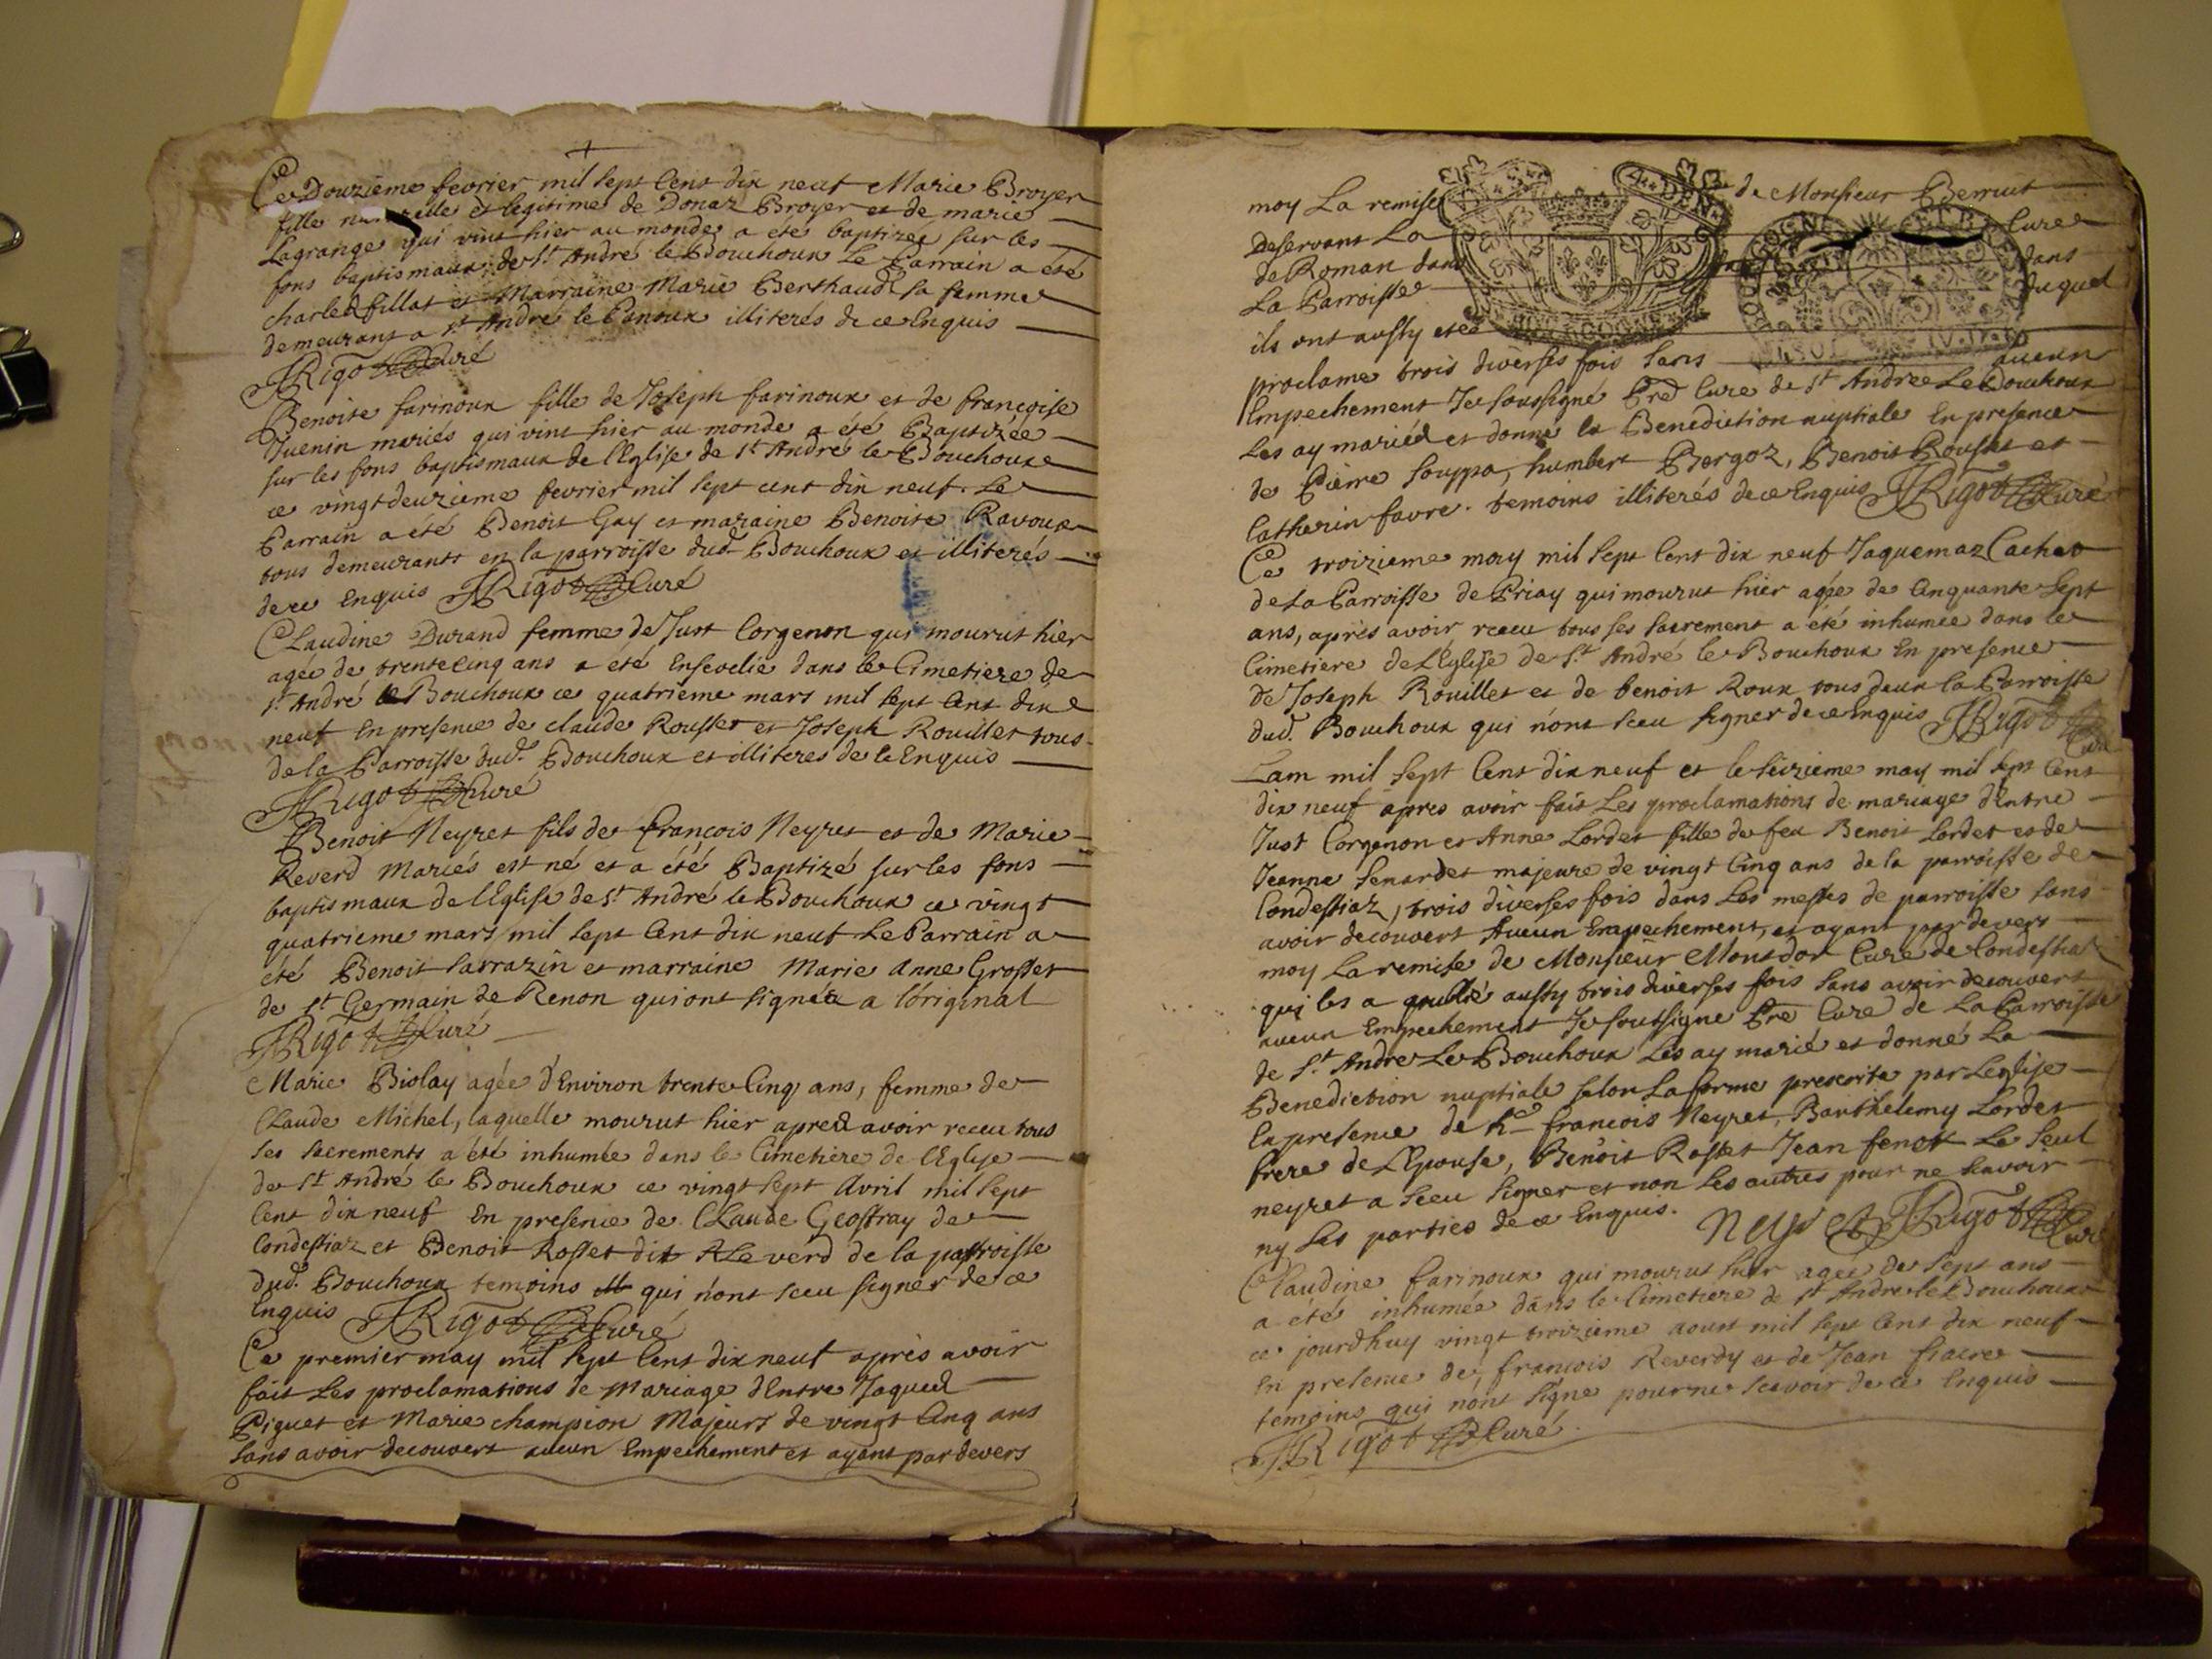 Ce Douzieme fevrier mil sept Cent dix neuf Marie Broyer
fille naturelle et legitime de Donaz Broyer et de marie
Lagrange qui vint hier au monde a eté baptizée sur les
fons baptismaux de St André le Bouchoux Le Parrain a été
charles fillat et Marraine Marie Berthaud sa femme
demeurant a St André le Panoux illiterés de ce Enquis
JRigot Curé
Benoite farinoux fille de Joseph farinoux et de françoise
Vuenin mariés qui vint hier au monde a été Baptizée
sur les fons baptismaux de lEglise de St André le Bouchoux
ce vingtdeuzieme fevrier mil sept cent dix neuf. Le
Parrain a été Benoit Gay et maraine Benoite Ravoux
tous demeurants en la parroisse dud. Bouchoux et illiterés
de ce Enquis JRigot Curé
Claudine Durand femme de Just Corgenon qui mourut hier
agée de trente Cinq ans a été Ensevelie dans le Cimetiere de
St André le Bouchoux ce quatrieme mars mil sept Cent dix
neuf En presence de claude Rousset et Joseph Rouillet tous
de la Parroisse dud. Bouchoux et illiteres de ce Enquis
JRigot Curé
Benoit Neyret fils de françois Neyret et de Marie
Reverd Mariés est né et a été Baptizé sur les fons
baptismaux de lEglise de St André le Bouchoux ce vingt
quatrieme mars mil sept Cent dix neuf Le Parrain a
été Benoit Sarrazin et marraine Marie Anne Grosset
de St Germain de Renon qui ont signée a lóriginal
JRigot Curé
Marie Biolay agée d'Environ trente Cinq ans, femme de
Claude Michel, laquelle mourut hier apres avoir receu tous
ses sacrements a été inhumée dans le Cimetiere de l'Eglise
de St André le Bouchoux ce vingt sept Avril mil sept
Cent dix neuf En presence de Claude Geoffray de
Condessiaz et Benoit Rosset dit Reverd de la parroisse
dud. Bouchoux temoins qui nónt sceu signer de ce
Enquis JRigot Curé
Ce premier may mil sept Cent dix neuf après avoir
fait Les proclamations de Mariage dEntre Jaques
Piguet et Marie champion Majeurs de vingt Cinq ans
sans avoir decouvert aucun Empechement et ayant par devers
moy La remise de Monsieur Berruit
Deservant La Cure
de Roman dans dans
La Parroisse duquel
ils ont aussy eté
proclame trois diverses fois sans aucun
Empechement Je soussigné Pre Cure de St Andre Le Bouchoux
Les ay mariés et donné la Benediction nuptiale En presence
de Pierre Souppa, humbert Bergoz, Benoit Rousset et
Catherin favre. temoins illiterés de ce Enquis JRigot Curé
Ce troizieme may mil sept Cent dix neuf Jaquemaz Cachet
de La Parroisse de Priay qui mourut hier agée de Cinquante sept
ans, après avoir receu tous ses sacrement a été inhumée dans le
Cimetiere de LEglise de St André le Bouchoux En presence
de Joseph Rouillet et de benoit Roux tous deux la Parroisse
dud. Bouchoux qui nónt sceu signer de ce Enquis JRigot Curé
Lam mil sept Cent dix neuf et le seizieme may mil sept Cent
dix neuf apres avoir fait Les proclamations de mariage dEntre
Just Corgenon et Anne Lordet fille de feu Benoit Lordet et de
Jeanne Senardet majeure de vingt Cinq ans de la parroisse de
Condessiaz, trois diverses fois dans Les messes de parroisse sans
avoir decouvert Aucun Empechement, et ayant par devers
moy La remise de Monsieur Montdor Cure de Condessiaz
qui les a publié aussy trois diverses fois sans avoir decouvert
aucun Empechement Je soussigne Pre Cure de La Parroisse
de St Andre Le Bouchoux Les ay marié et donné La
Benediction nuptiale selon La forme prescrite par Leglise
En presence de he francois Neyret, Barthelemy Lordet
frere de LEpouse, Benoit Rosset Jean fenot Le seul
neyret a sceu signer et non Les autres pour ne savoir
ny Les parties de ce Enquis. Neyret JRigot Curé
Claudine farinoux qui mourut hier agée de sept ans
a été inhumée dans le Cimetiere de St Andre le Bouchoux
ce jourdhuy vingt troizieme aoust mil sept Cent dix neuf
En presence de françois Reverdy et de Jean fiacre
temoins qui nónt signe pour ne scavoir de ce Enquis
JRigot Curé.